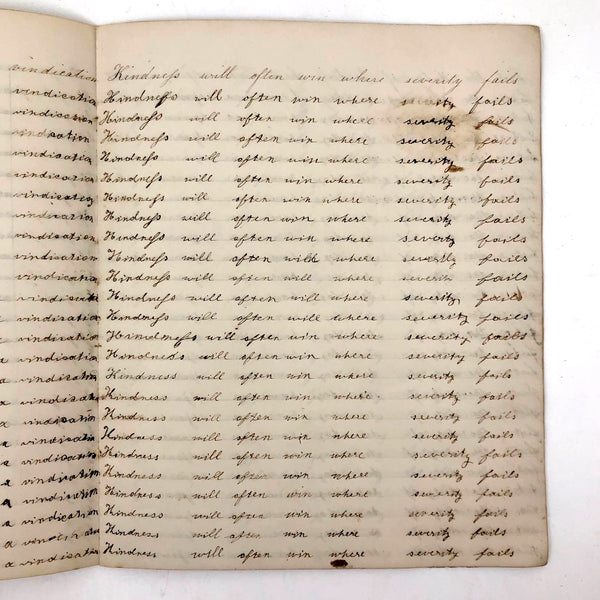 vindication
vindicatio
vindication
vindication
vindicatio
vindication
vindication
vindication
vindication
vindication
vindicatio
vindication
vindication
a vindication
a vindication
a vindication
a vindication
a vindication
a vindication
a vindication
a vindication
a vindication
a vindication
a vindication
Kindness will often win where severity fails
Kindness will often win where severity fails
Kindness will often win where severity fails
Kindness will often win where severity fails
Kindness will often win where severity fails
Kindness will often win where severity fails
Kindness will often win where severity fails
Kindness will often win where severity fails
Kindness will often win where severity fails
Kindness will often will where severity fails
Kindness will often will where severity fails
Kindness will often will where severity fails
Kindness will often will where severity fails
Kindmess will often win where severity fails
Kindness will often win where severity fails
Kindness will often win where severity fails
Kindness will often win where severity fails
Kindness will often win where severity fails
Kindness will often win where severity fails
Kindness will often win where severity fails
Kindness will often win where severity fails
Kindness will often win where severity fails
Kindness will often win where severity fails
Kindness will often win where severity fails
Kindness will often win where severity fails